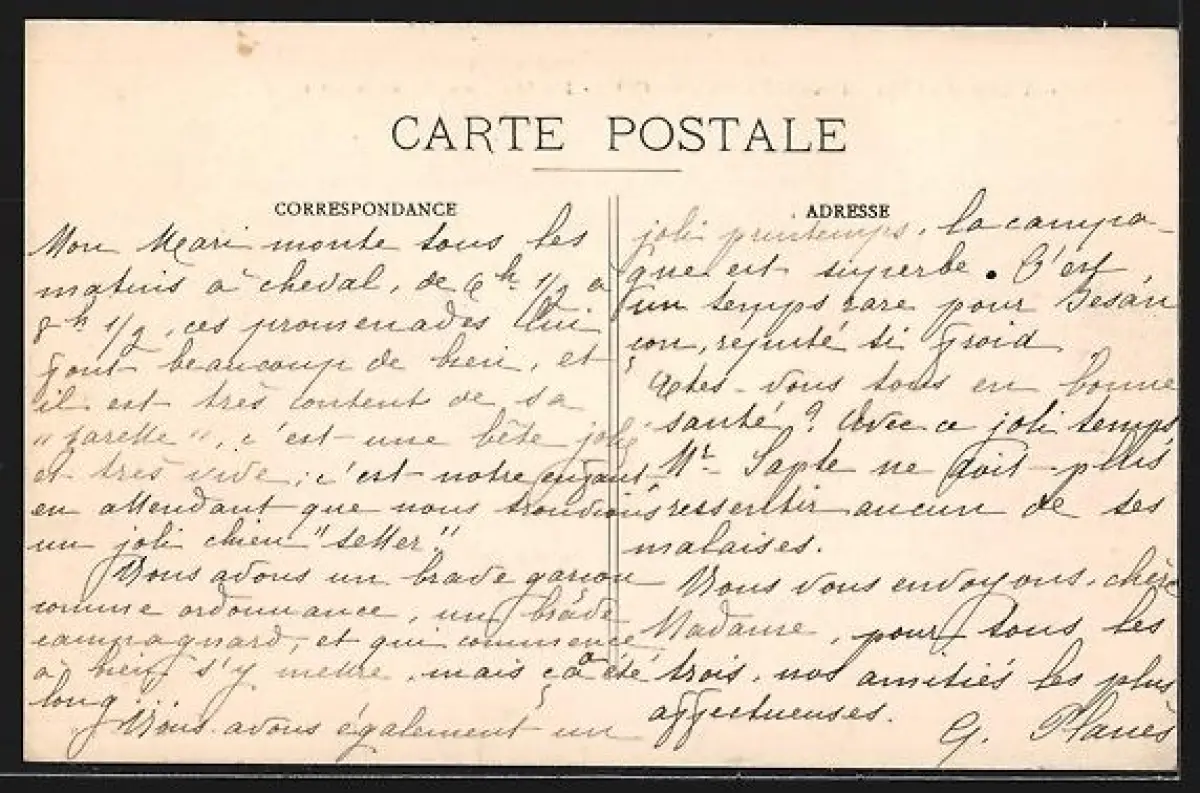 CARTE POSTALE
CORRESPONDANCE
Mon Mari monte tous les
matins à cheval, de 6h 1/2 à
8h 1/2, ces promenades lui
font beaucoup de bien, et
il est très content de sa
c'est une bête jolie
et très vive ; c'est notre enfant
en attendant que nous trouvions
un joli chien "setter."
Nous avons un brave garçon
comme ordonnance, un brave
campagnard, et qui commence
à s'y mettre, mais ça a été
long...
Nous avons également un
ADRESSE
joli printemps, la campa-
gne est superbe. C'est
un temps rare pour Besan
çon, réputé si froid.
Êtes-vous tous en bonne
santé ? Avec ce joli temps
Mr Sapte ne doit plus
ressentir aucun de ses
malaises.
Nous vous envoyons, chère
Madame, pour tous les
trois, nos amitiés les plus
affectueuses.
G. Planès